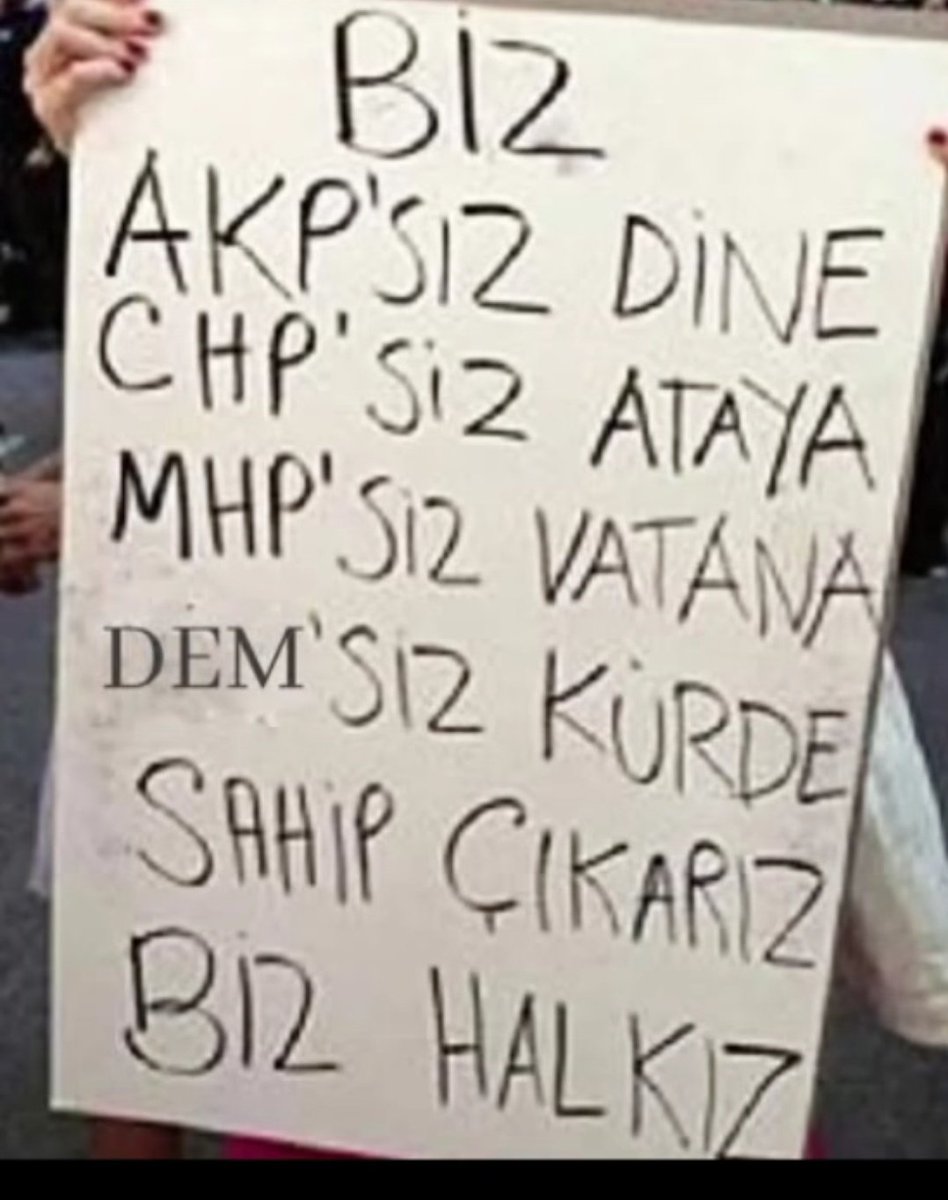 BİZ
AKP'SIZ DİNE
CHP'SİZ ATAYA
MHP'SİZ VATANA
DEM'SİZ KÜRDE
SAHİP ÇIKARIZ
BİZ HALKIZ